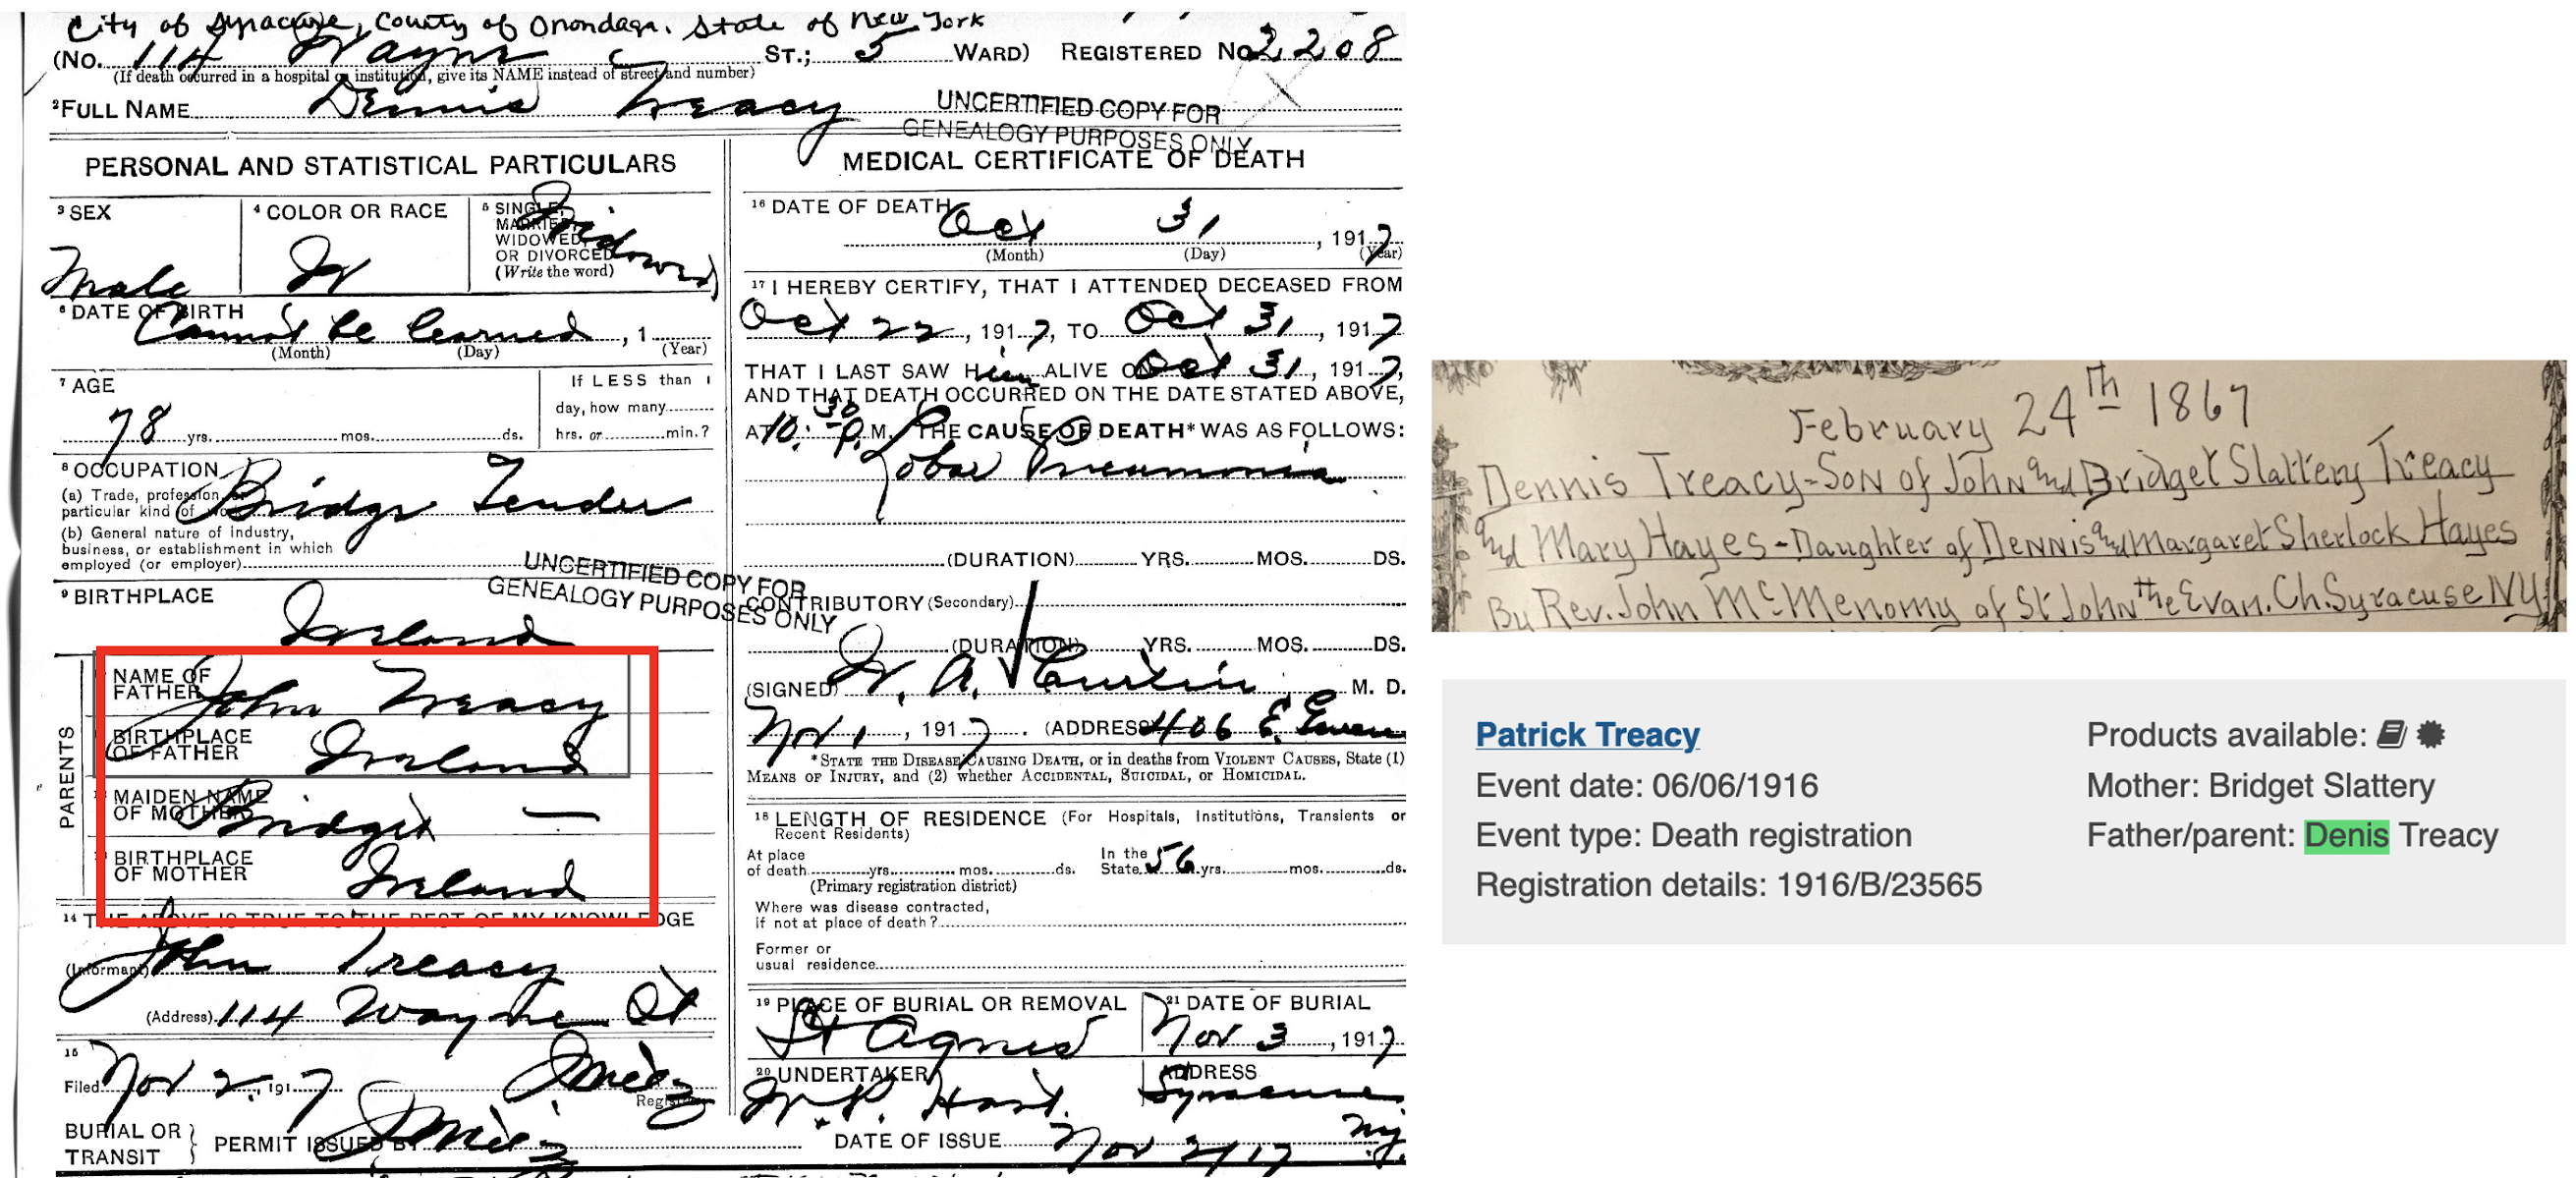 City of Syracuse, County of Onondaga. State of New York
(No. 114 Wayne ST.; 5 WARD) REGISTERED No 2208
(If death occurred in a hospital or institution, give its NAME instead of street and number)
2 FULL NAME Dennis Treacy
UNCERTIFIED COPY FOR
GENEALOGY PURPOSES ONLY
PERSONAL AND STATISTICAL PARTICULARS
3 SEX
Male
4 COLOR OR RACE
W
5 SINGLE,
MARRIED,
WIDOWED,
OR DIVORCED
(Write the word)
Widowed
6 DATE OF BIRTH
Cannot be learned, 1
(Month) (Day) (Year)
7 AGE
78 yrs. mos. ds.
If LESS than 1
day, how many
hrs. or min.?
8 OCCUPATION
(a) Trade, profession, or
particular kind of work
Bridge Tender
(b) General nature of industry,
business, or establishment in which
employed (or employer)
UNCERTIFIED COPY FOR
GENEALOGY PURPOSES ONLY
9 BIRTHPLACE
Ireland
PARENTS
NAME OF
FATHER
John Treacy
BIRTHPLACE
OF FATHER
Ireland
MAIDEN NAME
OF MOTHER
Bridget —
BIRTHPLACE
OF MOTHER
Ireland
14 THE ABOVE IS TRUE TO THE BEST OF MY KNOWLEDGE
(Informant) John Treacy
(Address) 114 Wayne St
15
Filed Nov 2, 1917
Registrar
BURIAL OR
TRANSIT } PERMIT ISSUED BY
MEDICAL CERTIFICATE OF DEATH
16 DATE OF DEATH
Oct 31, 1917
(Month) (Day) (Year)
17 I HEREBY CERTIFY, THAT I ATTENDED DECEASED FROM
Oct 22, 1917, TO Oct 31, 1917
THAT I LAST SAW Him ALIVE ON Oct 31, 1917,
AND THAT DEATH OCCURRED ON THE DATE STATED ABOVE,
AT 10:30 P. M. THE CAUSE OF DEATH* WAS AS FOLLOWS:
Lobar Pneumonia
(DURATION) YRS. MOS. DS.
CONTRIBUTORY (Secondary)
(DURATION) YRS. MOS. DS.
(SIGNED) W. A. Curtin M. D.
Nov 1, 1917. (ADDRESS) 406 E.
*STATE THE DISEASE CAUSING DEATH, or in deaths from VIOLENT CAUSES, State (1)
MEANS OF INJURY, and (2) whether ACCIDENTAL, SUICIDAL, or HOMICIDAL.
18 LENGTH OF RESIDENCE (For Hospitals, Institutions, Transients or
Recent Residents)
At place
of death yrs. mos. ds.
In the
State 56 yrs. mos. ds.
(Primary registration district)
Where was disease contracted,
if not at place of death?
Former or
usual residence
19 PLACE OF BURIAL OR REMOVAL
St Agnes
21 DATE OF BURIAL
Nov 3, 1917
20 UNDERTAKER
ADDRESS
Syracuse
N.Y.
DATE OF ISSUE Nov 2/17
February 24th 1867
Dennis Treacy-Son of John and Bridget Slattery Treacy
and Mary Hayes-Daughter of Dennis and Margaret Sherlock Hayes
By Rev. John McMenomy of St John the Evan. Ch. Syracuse NY
Patrick Treacy
Event date: 06/06/1916
Event type: Death registration
Registration details: 1916/B/23565
Products available:
Mother: Bridget Slattery
Father/parent: Denis Treacy